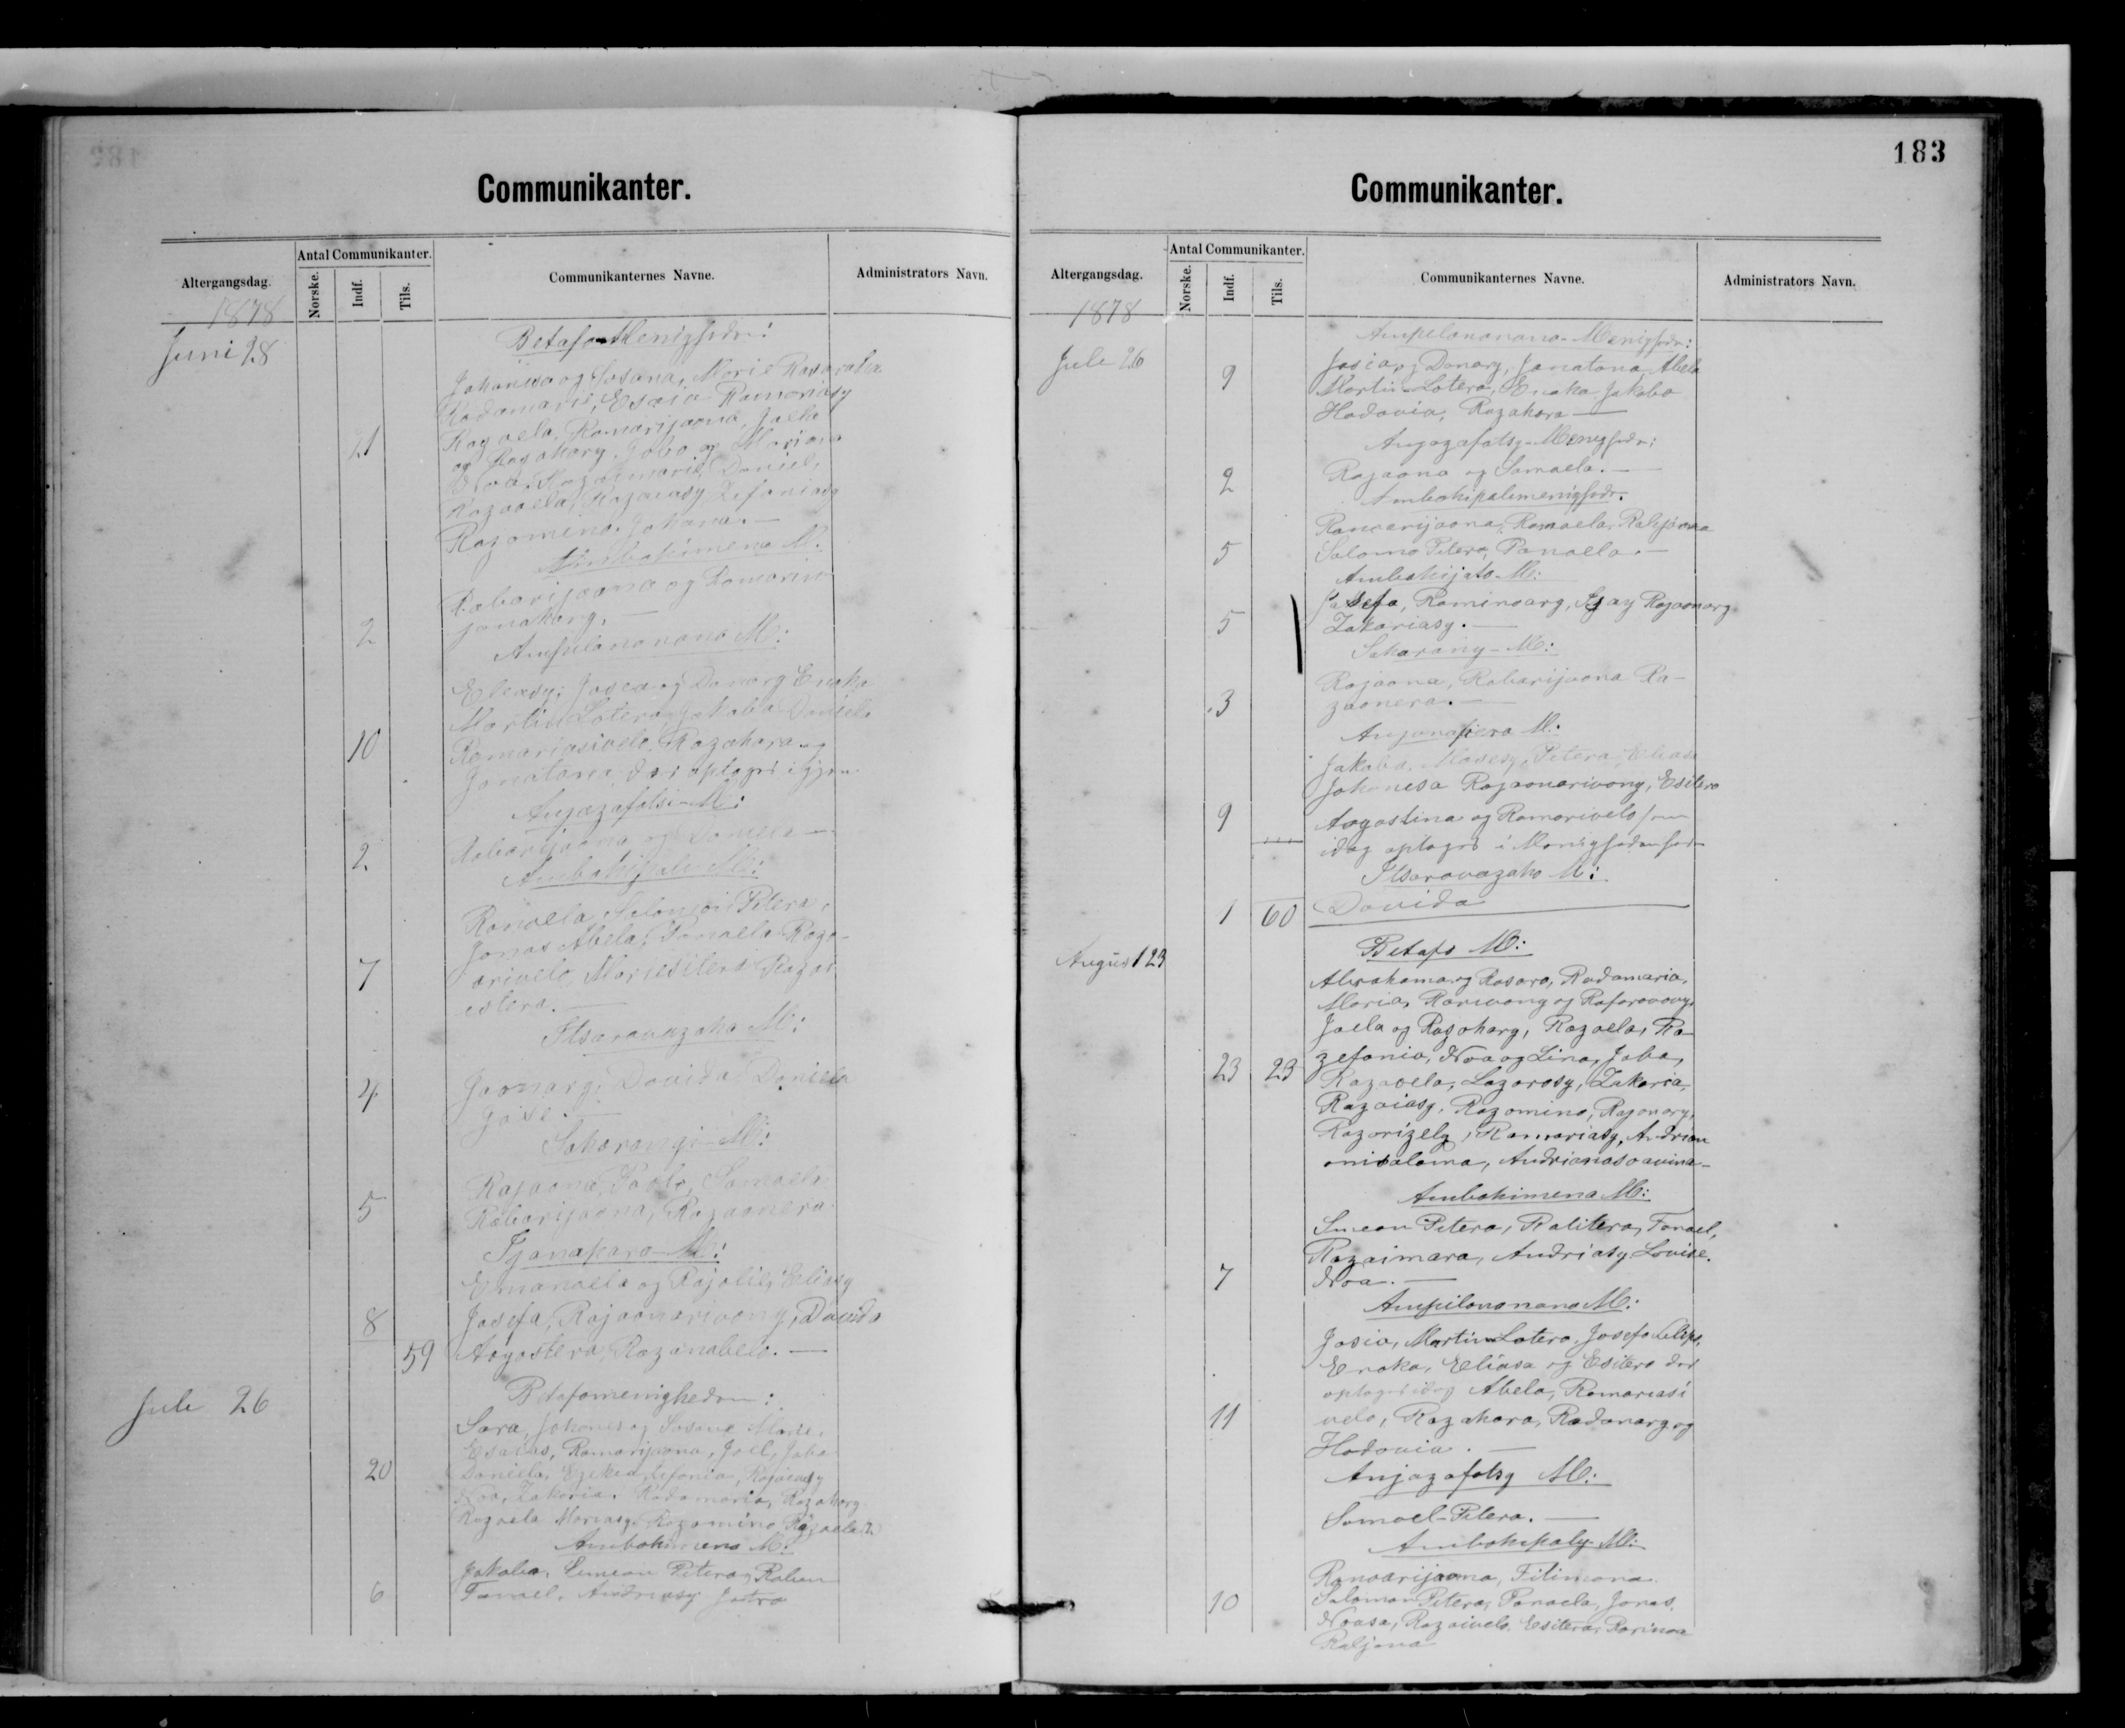 Communikanter.
Altergangsdag. Antal Communikanter. Communikanternes Navne. Administrators Navn.
Norske. Indf. Tils.
1878
Juni 28 Betafo Menigheden:
Johanesa og Sosana, Marie
Radamarie, Esaia Ramariasy
Razaela, Ramarijaona, Joela
21 og Razakary. Joba og Mariana
Noa. Razaimarie Daniel,
Razaela, Razaiasy Zefaniasy
Razomino. Johana. —
Ambohimena M:
Rabarijaona og Ramarivo
2 jonakary. —
Ampilanonana M:
Eleasy; Josea og Danarg Enoka
Martin Lotera, Jakaba Daniela
10 Ramariasivelo. Razakara og
Jonatana der optoges igjen
Anjazafotsi M:
2 Rabarijaona og Daniela —
Ambohipale M:
Ranaela, Salomon Petera,
Jonas Abela, Panaela Raza-
7 arivelo, Mariesitera Razai
estera. —
Itsaravazaha M:
4 Jaonary; Davida Daniela
Jose. —
Saharangi M:
Rajaona, Paolo, Samoela
5 Rabarijaona, Razaonera.
Tjanaparo M:
Emanoela og Rajoli; Eliasy
8 Josefa, Rajaonarivony, Davida
59 Aogostera, Razanabelo. —
Jule 26 Betafomenigheden:
Sara, Johanes og Sosana Marie.
Esaias, Ramarijaona, Joel, Joba
20 Daniela, Ezekia, Zefania, Razaiasy
Noa, Zakaria. Radamaria, Razakary.
Razaela Mariasy. Razomino Razaela 2.
Ambohimena M:
Jakaba, Simeon Petera, Raben
6 Fanael. Andriasy
183
Communikanter.
Altergangsdag. Antal Communikanter. Communikanternes Navne. Administrators Navn.
Norske. Indf. Tils.
1878
Ampilanonana-Menigheden:
Jule 26 Josia og Danary, Janatana Abela
9 Martin Lotera, Enoka Jakaba
Hodavia, Razakara —
Anjazafotsy-Menigheden:
2 Rajaona og Samoela. —
Ambohipalemenigheden.
Ranarijaona, Ramaela, Ralijaona
5 Salomo Petera, Panaela. —
Ambohijato M:
Josefa, Raminoarg, Rajaonarg
5 Zakariasy. —
Saharany-M:
Rajaona, Rabarijaona Ra-
3 zaonera. —
Anjanapera M:
Jakaba. Mosesy, Petera, Eliasa
Johanesa Rajaonarivony, Esitera
9 Aogostina og Ramarivelo som
idag optoges i Menigheden for
Itsaravazaho M:
1 60 Davida
August 23 Betafo M:
Abrahama og Rasara, Radamaria.
Maria, Rarivony og Rafaravavy
Joela og Razakary, Razaela, Ra-
23 23 zefania, Noa og Lina, Joba,
Razaoela, Lazarosy, Zakaria,
Razaiasy. Razomino, Rajonary,
Razarizely, Ramariasy. Andrian
onisalama, Andrianasoavina-
Ambohimena M:
Simeon Petera, Ralitera, Fanael,
Razaimara, Andriasy. Lovise.
7 Noa. —
Ampilanonana M:
Josia, Martin Lotera, Josefa
Enoka, Eliasa og Esitera der
optoges idag Abela, Ramariasi
11 velo, Razakara, Radanarg og
Hodavia. —
Anjazafotsy M:
Samoel-Petera. —
Ambohipaly M:
Ranoarijaona, Filimona
10 Salomon Petera, Panaela, Jonas.
Noasa, Razaivelo. Esitera, Rarinoa
Raljaona